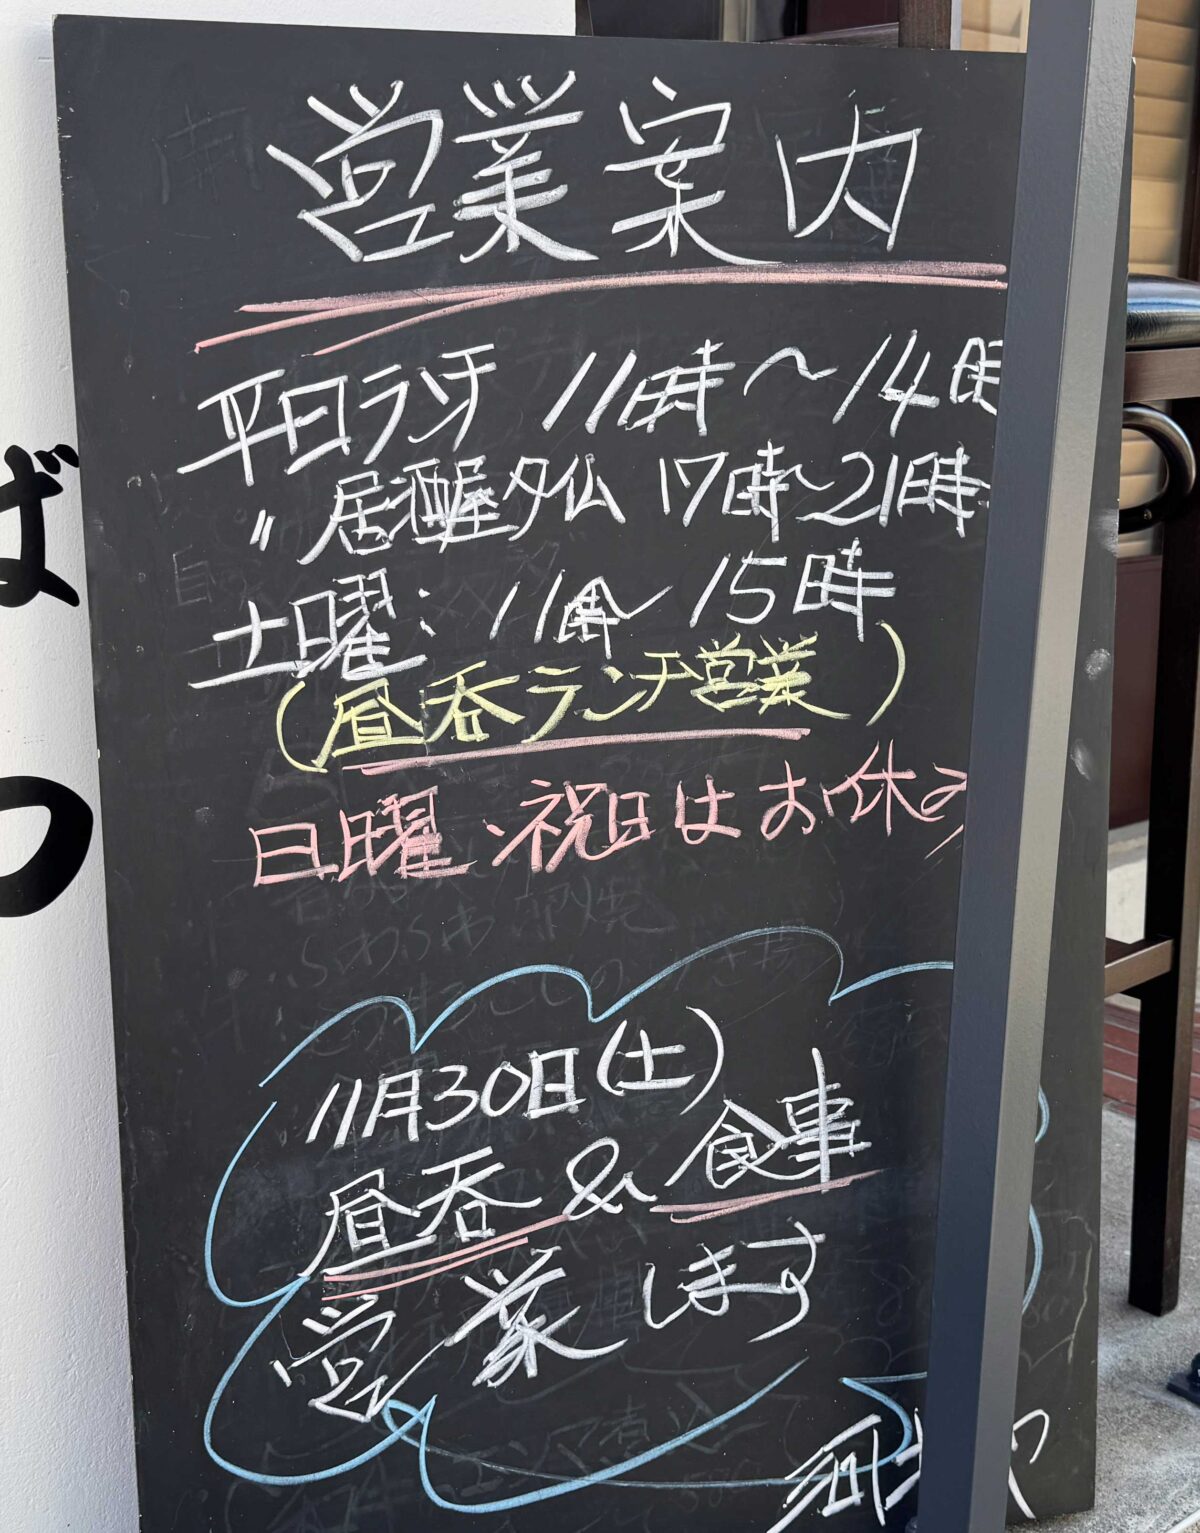 営業案内
平日ランチ 11時〜14時
〃 居酒屋タイム 17時〜21時
土曜: 11時〜15時
(昼呑ランチ営業)
日曜、祝日はお休み
11月30日(土)
昼呑&食事
営業します
ば
つ